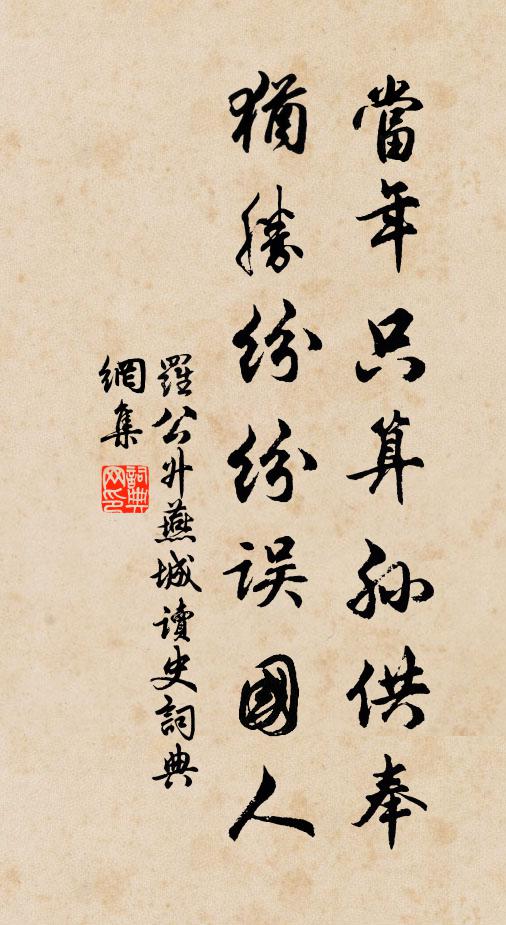 當年只算孙供奉
猶勝纷纷误國人
羅公升燕城讀史詞典
網集
詞典
网印